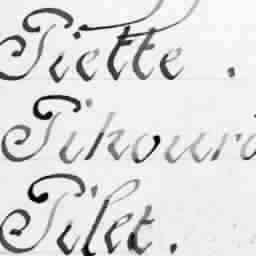 Piette.
Pikour
Pilet.